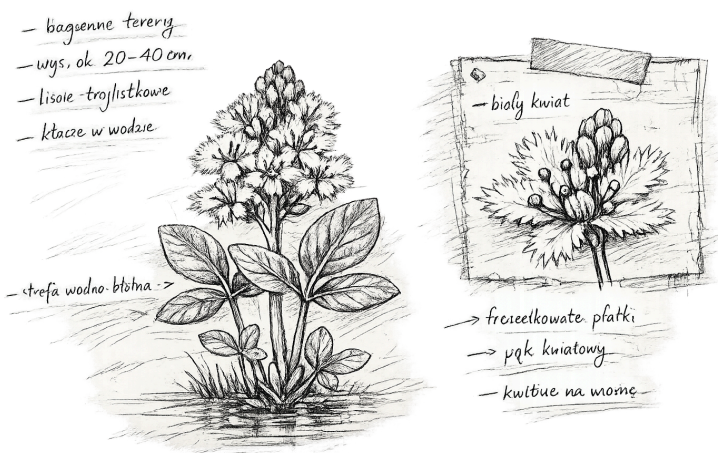 — bagsenne tereriy
— wys. ok 20–40 cm.
— lisoie -trojlistkowe
— kłacze w wodzie
— strefa wodno-błotna ->
— bioly kwiat
→ frezeelkowate płatki
→ pąk kwiatowy
— kwitiue na wiomę